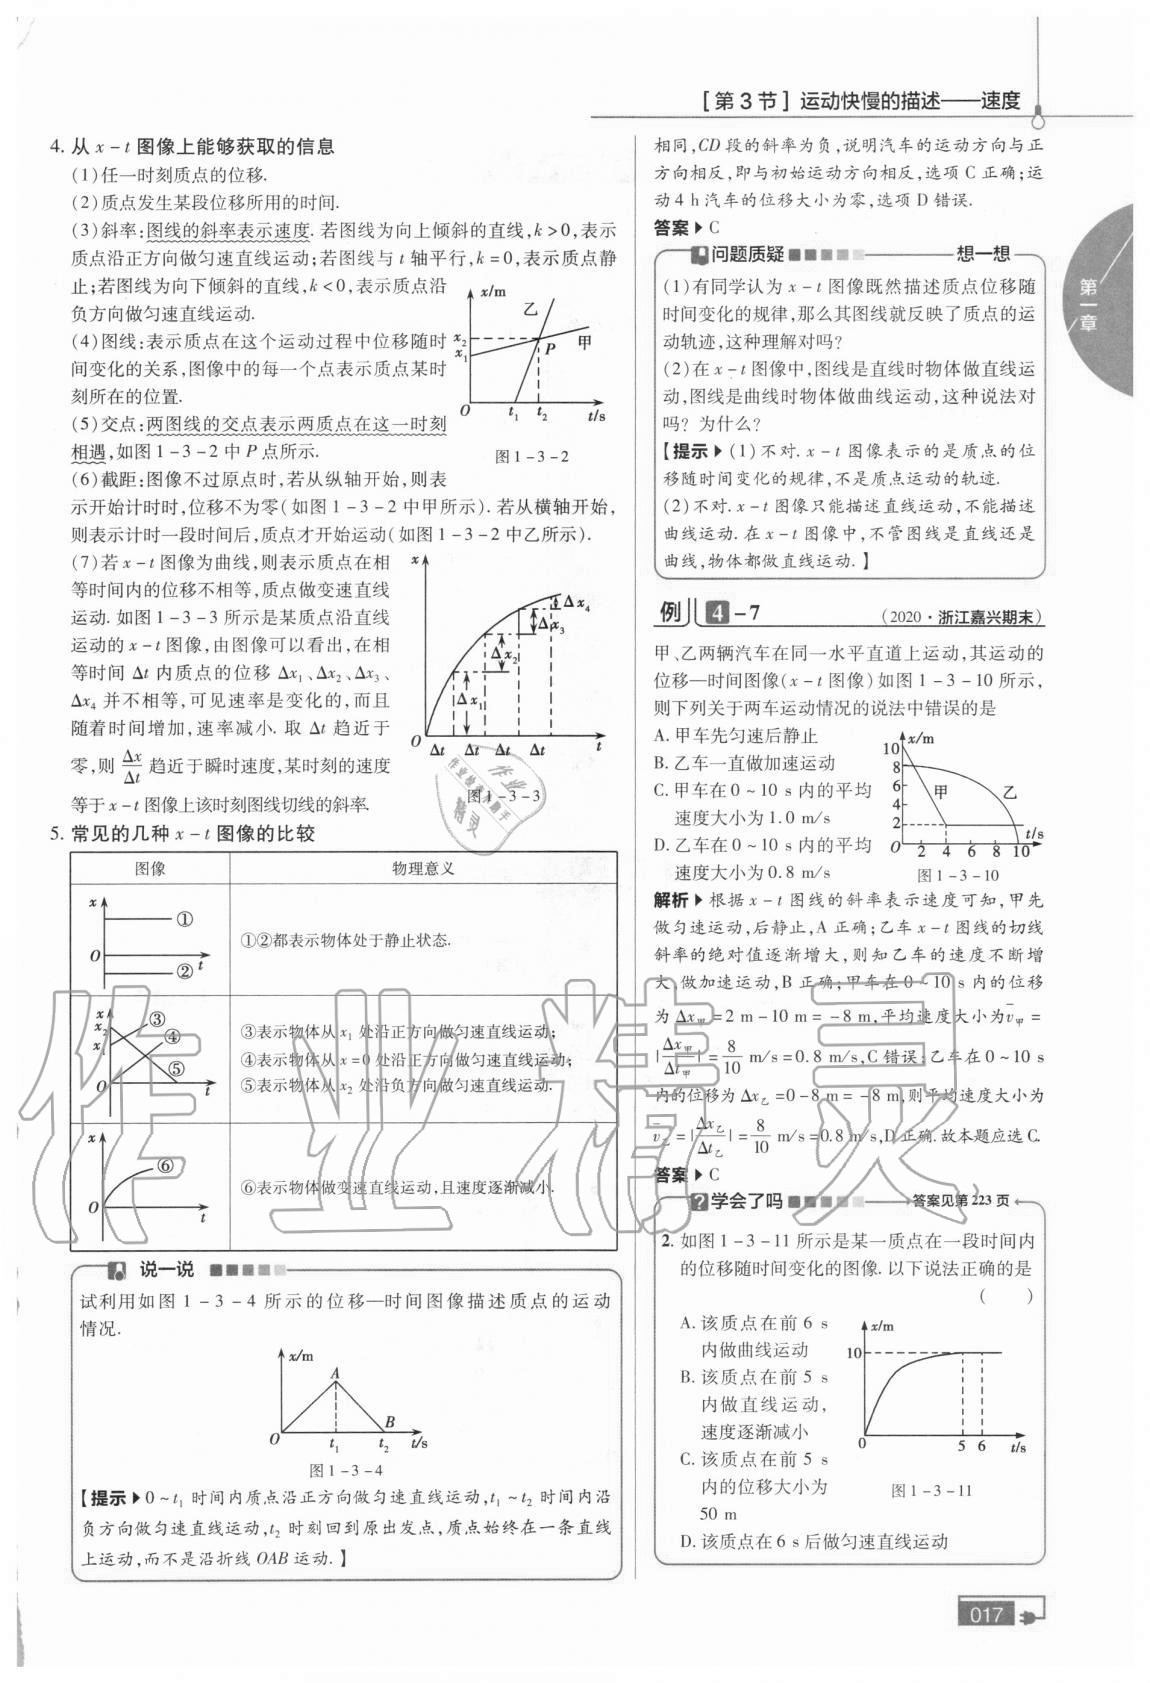 [第3节] 运动快慢的描述——速度
4. 从 x-t 图像上能够获取的信息
(1)任一时刻质点的位移.
(2)质点发生某段位移所用的时间.
(3)斜率:图线的斜率表示速度. 若图线为向上倾斜的直线,k>0,表示
质点沿正方向做匀速直线运动;若图线与 t 轴平行,k=0,表示质点静
止;若图线为向下倾斜的直线,k<0,表示质点沿
负方向做匀速直线运动.
(4)图线:表示质点在这个运动过程中位移随时
间变化的关系,图像中的每一个点表示质点某时
刻所在的位置.
(5)交点:两图线的交点表示两质点在这一时刻
相遇,如图1-3-2中P点所示.
(6)截距:图像不过原点时,若从纵轴开始,则表
x/m
乙
甲
x₂
x₁
P
O
t₁ t₂ t/s
图1-3-2
示开始计时时,位移不为零(如图1-3-2中甲所示). 若从横轴开始,
则表示计时一段时间后,质点才开始运动(如图1-3-2中乙所示).
(7)若 x-t 图像为曲线,则表示质点在相
等时间内的位移不相等,质点做变速直线
运动. 如图1-3-3所示是某质点沿直线
运动的 x-t 图像,由图像可以看出,在相
等时间 Δt 内质点的位移 Δx₁、Δx₂、Δx₃、
Δx₄ 并不相等,可见速率是变化的,而且
随着时间增加,速率减小. 取 Δt 趋近于
零,则 Δx/Δt 趋近于瞬时速度,某时刻的速度
等于 x-t 图像上该时刻图线切线的斜率.
x
Δx₄
Δx₃
Δx₂
Δx₁
O
Δt Δt Δt Δt t
图1-3-3
5. 常见的几种 x-t 图像的比较
图像 物理意义
x
①
O
② t
①②都表示物体处于静止状态.
x
x₂
x₁
③
④
⑤
O t
③表示物体从 x₁ 处沿正方向做匀速直线运动;
④表示物体从 x=0 处沿正方向做匀速直线运动;
⑤表示物体从 x₂ 处沿负方向做匀速直线运动.
x
⑥
O t
⑥表示物体做变速直线运动,且速度逐渐减小.
说一说
试利用如图1-3-4所示的位移—时间图像描述质点的运动
情况.
x/m
A
B
O t₁ t₂ t/s
图1-3-4
【提示▶0~t₁ 时间内质点沿正方向做匀速直线运动,t₁~t₂ 时间内沿
负方向做匀速直线运动,t₂ 时刻回到原出发点,质点始终在一条直线
上运动,而不是沿折线OAB运动.】
相同,CD段的斜率为负,说明汽车的运动方向与正
方向相反,即与初始运动方向相反,选项C正确;运
动4 h汽车的位移大小为零,选项D错误.
答案▶C
问题质疑 想一想
(1)有同学认为 x-t 图像既然描述质点位移随
时间变化的规律,那么其图线就反映了质点的运
动轨迹,这种理解对吗?
(2)在 x-t 图像中,图线是直线时物体做直线运
动,图线是曲线时物体做曲线运动,这种说法对
吗? 为什么?
【提示▶(1)不对. x-t 图像表示的是质点的位
移随时间变化的规律,不是质点运动的轨迹.
(2)不对. x-t 图像只能描述直线运动,不能描述
曲线运动. 在 x-t 图像中,不管图线是直线还是
曲线,物体都做直线运动.】
例 4-7 (2020·浙江嘉兴期末)
甲、乙两辆汽车在同一水平直道上运动,其运动的
位移—时间图像(x-t 图像)如图1-3-10所示,
则下列关于两车运动情况的说法中错误的是
A. 甲车先匀速后静止
B. 乙车一直做加速运动
C. 甲车在0~10 s内的平均
速度大小为1.0 m/s
D. 乙车在0~10 s内的平均
速度大小为0.8 m/s
x/m
10
8
6
4
2
甲
乙
O 2 4 6 8 10 t/s
图1-3-10
解析▶根据 x-t 图线的斜率表示速度可知,甲先
做匀速运动,后静止,A正确;乙车 x-t 图线的切线
斜率的绝对值逐渐增大,则知乙车的速度不断增
大,做加速运动,B正确;甲车在0~10 s内的位移
为 Δx甲=2 m-10 m=-8 m,平均速度大小为 v̄甲=
|Δx甲/Δt甲|=8/10 m/s=0.8 m/s,C错误;乙车在0~10 s
内的位移为 Δx乙=0-8 m=-8 m,则平均速度大小为
v̄乙=|Δx乙/Δt乙|=8/10 m/s=0.8 m/s,D正确.故本题应选C.
答案▶C
学会了吗 答案见第223页
2. 如图1-3-11所示是某一质点在一段时间内
的位移随时间变化的图像. 以下说法正确的是
( )
A. 该质点在前6 s
内做曲线运动
B. 该质点在前5 s
内做直线运动,
速度逐渐减小
C. 该质点在前5 s
内的位移大小为
50 m
D. 该质点在6 s后做匀速直线运动
x/m
10
0 5 6 t/s
图1-3-11
第一章
017
作业精灵
作业
作业检查小助手
精灵